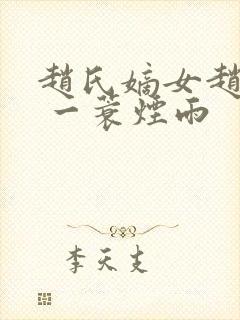 趙氏嫡女趙
一蓑煙雨
李天支